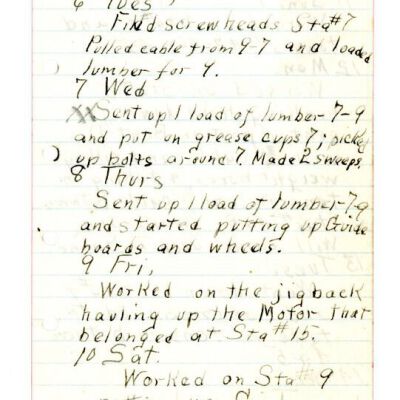 6 Tues
Fil'd screw heads Sta #7
Pulled cable from 9-7 and loaded
lumber for 7.
7 Wed
XX Sent up 1 load of lumber 7-9
and put on grease cups 7; picked
up bolts around 7. Made 2 sweeps.
8 Thurs
Sent up 1 load of lumber 7-9
and started putting up Guide
boards and wheels.
9 Fri,
Worked on the jigback
hauling up the Motor that
belonged at Sta # 15.
10 Sat.
Worked on Sta # 9